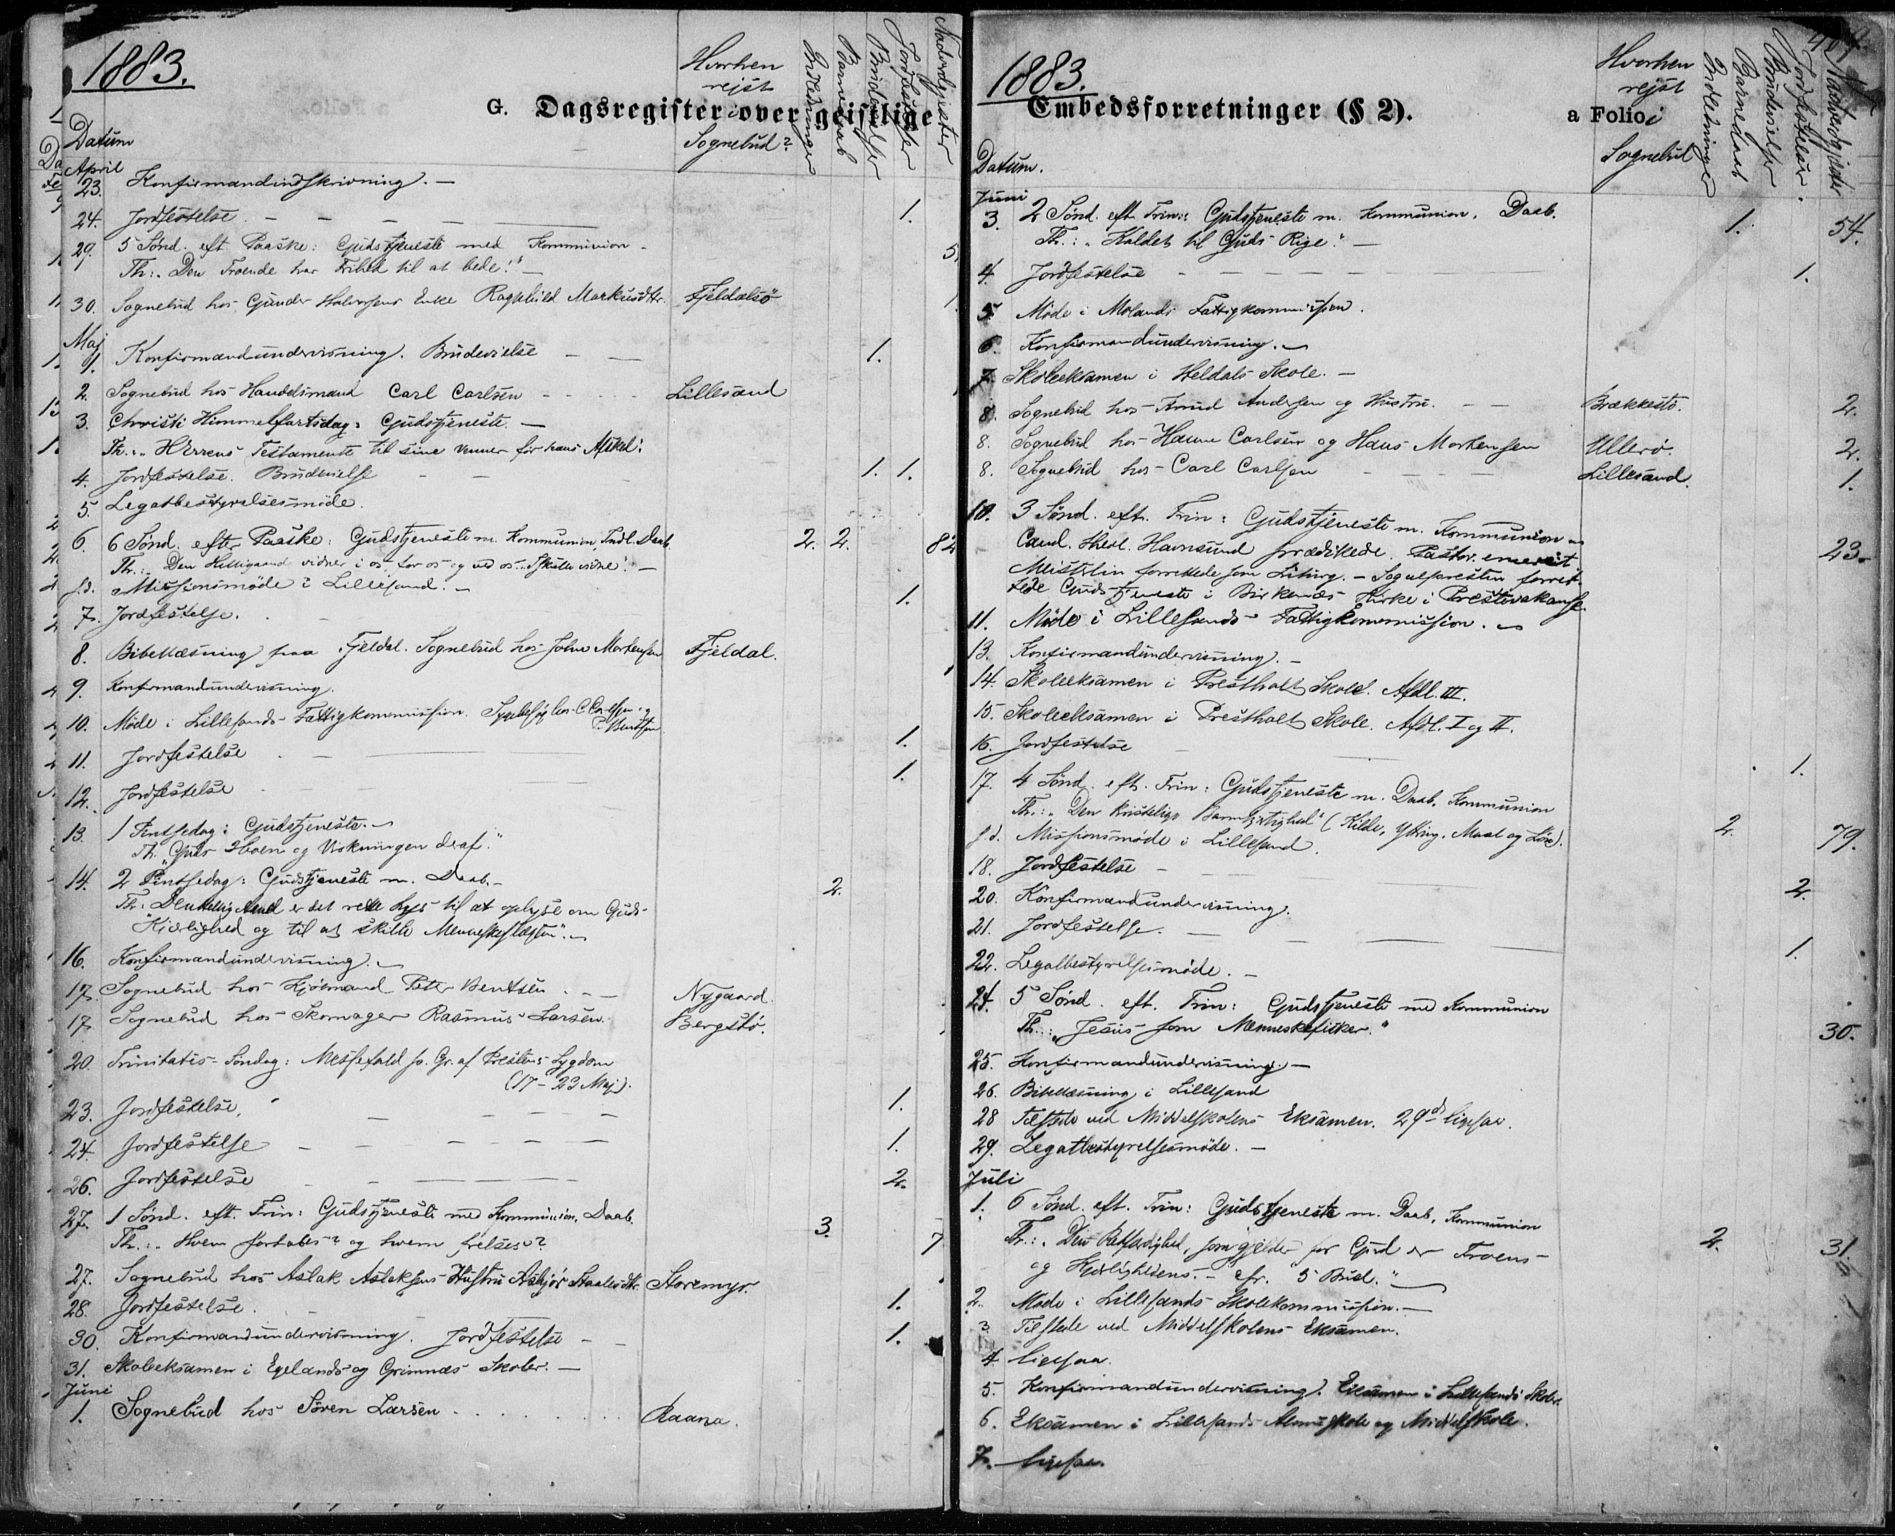 1883.
G. Dagsregister over geistlige
Hvorhen rejst i Sognebud?
Indledninger
Barnedaab
Brudevielser
Jordfæstelser
Nadverdgjester
Datum
April
23. Konfirmandindskrivning. —
24. Jordfæstelse. 1.
29. 5 Sönd. eft. Paaske: Gudstjeneste med Kommunion.
Th.: "Den Troende har Frihed til at bede!" —
30. Sognebud hos Gunder Halvorsens Enke Ragnhild Markusdtr. Fjeldalsö
Maj
1. Konfirmandundervisning. Brudevielse 1.
2. Sognebud hos Handelsmand Carl Carlsen Lillesand
3. Christi Himmelfartsdag: Gudstjeneste. —
Th.: "HErrens Testamente til sine Venner før hans
4. Jordfæstelse. Brudevielse 1. 1.
5. Legatbestyrelsesmöde.
6. 6 Sönd. efter Paaske: Gudstjeneste m. Kommunion, Indl. Daab. 2. 2. 82
Th.: Den Helligaand vidner i os, for os og ved os.
s.d. Missionsmøde i Lillesand. —
7. Jordfestelse. 1.
8. Bibellæsning paa Fjeldal. Sognebud hos John Mortensen Fjeldal.
9. Konfirmandundervisning.
10. Møde i Lillesands Fattigkommission. Sygebesög hos C. Carlsen og
P. Bentsen
11. Jordfestelse 1.
12. Jordfestelse 1.
13. 1 Pintsedag: Gudstjeneste. —
Th. "Guds Aaen og Virkningen deraf."
14. 2 Pintsedag: Gudstjeneste m. Daab. — 2.
Th.: Den hellig Aand er det rette Lys til at oplyse om Guds
Kjærlighed og til at skille Menneskeslægten". —
16. Konfirmandundervisning. —
17. Sognebud hos Sjömand Peter Bentsen Nygaard.
17. Sognebud hos Skomager Rasmus Larsen Bergstö.
20. Trinitatis Söndag: Messefald p. Gr. af Prestens Sygdom
(17–23 Maj).
23. Jordfestelse. 1.
24. Jordfestelse 1.
26. Jordfestelse 2.
27. 1 Sönd. eft. Trin: Gudstjeneste med Kommunion, Daab. 3. 7
Th.: "Hvem fortabes? og hvem frelses"?
27. Sognebud hos Aslak Aslaksens Hustru Asbjör Staalesdtr. Storemyr.
28. Jordfestelse. 1.
30. Konfirmandundervisning. Jordfestelse — 1.
31. Skoleeksamen i Egelands og Grimnæs Skoler. —
Juni
1. Sognebud hos Sören Larsen Raana.
1883.
Embedsforretninger (§ 2).
a Folio
Hvorhen rejst i Sognebud
Indledninger
Barnedaab
Brudevielser
Jordfæstelser
Nadverdgjester
Datum.
Juni
3. 2 Sönd. eft. Trin: Gudstjeneste m. Kommunion. Daab. 1. 54.
Th.: "Kaldet til Guds Rige." —
4. Jordfestelse 1.
5. Møde i Molands Fattigkommission.
6. Konfirmandundervisning. —
7. Skoleeksamen i Heldals Skole. —
8. Sognebud hos Knud Andersen og Hustru. Brækkestö. 2.
8. Sognebud hos Hanne Carlsen og Hans Mortensen Ulerö. 2.
8. Sognebud hos Carl Carlsen Lillesand. 1.
10. 3 Sönd. eft. Trin: Gudstjeneste m. Kommunion —
Cand. theol. Havnsund prædikede. Pastor emerit. 23.
Meistrlin forrettede som Liturg. — Sognepresten forret-
tede Gudstjeneste i Birkenæs Kirke i Prestevakanse.
11. Møde i Lillesands Fattigkommission. —
13. Konfirmandundervisning. —
14. Skoleeksamen i Prestholt Skole. Afdl. III.
15. Skoleeksamen i Prestholt Skole. Afdl. I og II.
16. Jordfestelse 1.
17. 4 Sönd. eft. Trin: Gudstjeneste m. Daab, Kommunion 2. 79.
Th.: "Den kristelige Barmhjertighed" (Kilde, Ytring, Maal og Lön).
s.d. Missionsmøde i Lillesand.
18. Jordfestelse 2.
20. Konfirmandundervisning.
21. Jordfestelse. 1.
22. Legatbestyrelsesmöde. —
24. 5 Sönd. eft. Trin: Gudstjeneste med Kommunion
Th.: "Jesus som Menneskefisker." 30.
25. Konfirmandundervisning. —
26. Bibellæsning i Lillesand
28 Tilstede ved Middelskolens Eksamen. 29d ligesaa.
29. Legatbestyrelsesmöde. —
Juli
1. 6 Sönd. eft. Trin: Gudstjeneste m. Daab, Kommunion 2. 31.
Th.: "Den Retfærdighed, som gjelder for Gud er Troens
og Kjærlighedens. — cfr. 5 Bud."
2. Møde i Lillesands Skolekommission. —
3. Tilstede ved Middelskolens Eksamen.
4. ligesaa.
5. Konfirmandundervisning. Eksamen i Lillesands Skole
6. Eksamen i Lillesands Almueskole og Middelskole.
7. ligesaa.